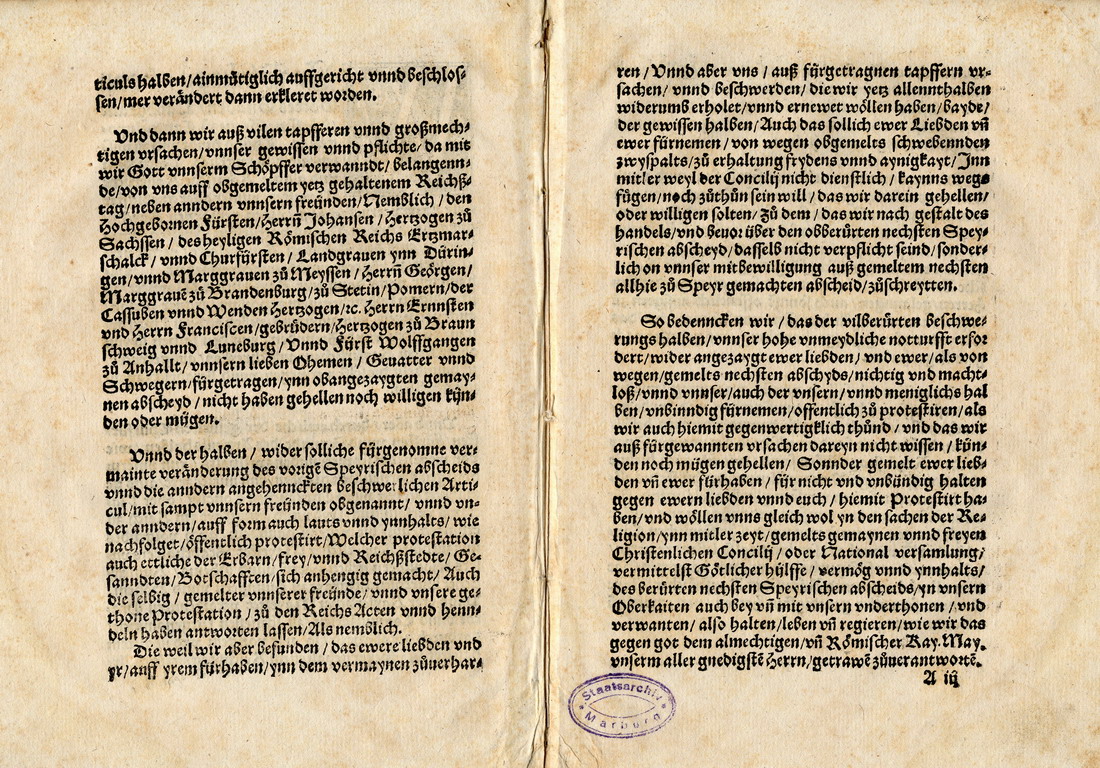 ticuls halben/ainmütiglich auffgericht vnnd beschlos-
sen/mer verändert dann erkleret worden.
Vnd dann wir auß vilen tapfferen vnnd großmech-
tigen vrsachen/vnnser gewissen vnnd pflichte/da mit
wir Gott vnnserm Schöpffer verwanndt/belangenn-
de/von vns auff obgemeltem yetz gehaltenem Reichß-
tag/neben anndern vnnsern freünden/Nemblich/den
Hochgebornen Fürsten/Herrñ Johansen/Hertzogen zů
Sachssen/des heyligen Römischen Reichs Ertzmar-
schalck/vnnd Churfürsten/Landgrauen ynn Dürin-
gen/vnnd Marggrauen zů Meyssen/Herrñ Geörgen/
Marggrauẽ zů Brandenburg/zů Stetin/Pomern/der
Cassuben vnnd Wenden Hertzogen/ꝛc. Herrn Ernnsten
vnd Herrn Franciscen/gebrüdern/Hertzogen zů Braun
schweig vnnd Luneburg/Vnnd Fürst Wolffgangen
zů Anhallt/vnnsern lieben Ohemen/Geuatter vnnd
Schwegern/fürgetragen/ynn obangezaygten gemay-
nen abscheyd/nicht haben gehellen noch willigen kün-
den oder mügen.
Vnnd der halben/wider solliche fürgenomne ver-
mainte veränderung des vorigẽ Speyrischen abscheids
vnnd die anndern angehennckten beschwerlichen Arti-
cul/mit sampt vnnsern freünden obgenannt/vnnd vn-
der anndern/auff form auch lauts vnnd ynnhalts/wie
nachfolget/öffentlich protestirt/Welcher protestation
auch ettliche der Erbarn/frey/vnnd Reichßstedte/Ge-
sanndten/Botschafften/sich anhengig gemacht/Auch
die selbig/gemelter vnnserer freünde/vnnd vnsere ge-
thone Protestation/zů den Reichs Acten vnnd henn-
deln haben antworten lassen/Als nemblich.
Die weil wir aber befunden/das ewere liebden vnd
yr/auff yrem fürhaben/ynn dem vermaynen zůuerhar-
ren/Vnnd aber vns/auß fürgetragnen tapffern vr-
sachen/vnnd beschwerden/die wir yetz allennthalben
widerumb erholet/vnnd ernewet wöllen haben/bayde/
der gewissen halben/Auch das sollich ewer Liebden vñ
ewer fürnemen/von wegen obgemelts schwebennden
zwyspalts/zů erhaltung frydens vnnd aynigkayt/Jnn
mitler weyl der Concilij nicht dienstlich/kaynns wegs
fügen/noch zůthůn sein will/das wir darein gehellen/
oder willigen solten/Zů dem/das wir nach gestalt des
handels/vnd beuor über den obberürten nechsten Spey-
rischen abscheyd/dasselb nicht verpflicht seind/sonder-
lich on vnnser mitbewilligung auß gemeltem nechsten
allhie zů Speyr gemachten abscheid/zůschreytten.
So bedenncken wir/das der vilberürten beschwe-
rungs halben/vnnser hohe vnmeydliche notturfft erfor
dert/wider angezaygt ewer liebden/vnd ewer/als von
wegen/gemelts nechsten abschyds/nichtig vnd macht-
loß/vnnd vnnser/auch der vnsern/vnnd meniglichs hal
ben/vnbinndig fürnemen/offentlich zů protestiren/als
wir auch hiemit gegenwertigklich thůnd/vnd das wir
auß fürgewannten vrsachen dareyn nicht wissen/kün-
den noch mügen gehellen/Sonnder gemelt ewer lieb-
den vñ ewer fürhaben/für nicht vnd vnbündig halten
gegen ewern liebden vnnd euch/hiemit Protestirt ha-
ben/vnd wöllen vnns gleich wol yn den sachen der Re-
ligion/ynn mitler zeyt/gemelts gemaynen vnnd freyen
Christenlichen Concilij/oder National versamlung/
vermittelst Götlicher hülffe/vermög vnnd ynnhalts/
des berürten nechsten Speyrischen abscheids/yn vnsern
Oberkaiten auch bey vñ mit vnsern vnderthonen/vnd
verwanten/also halten/leben vñ regieren/wie wir das
gegen got dem almechtigen/vñ Römischer Kay. May.
vnserm aller gnedigstẽ Herrn/getrawẽ zůuerantwortẽ.
A iij
Staatsarchiv
Marburg